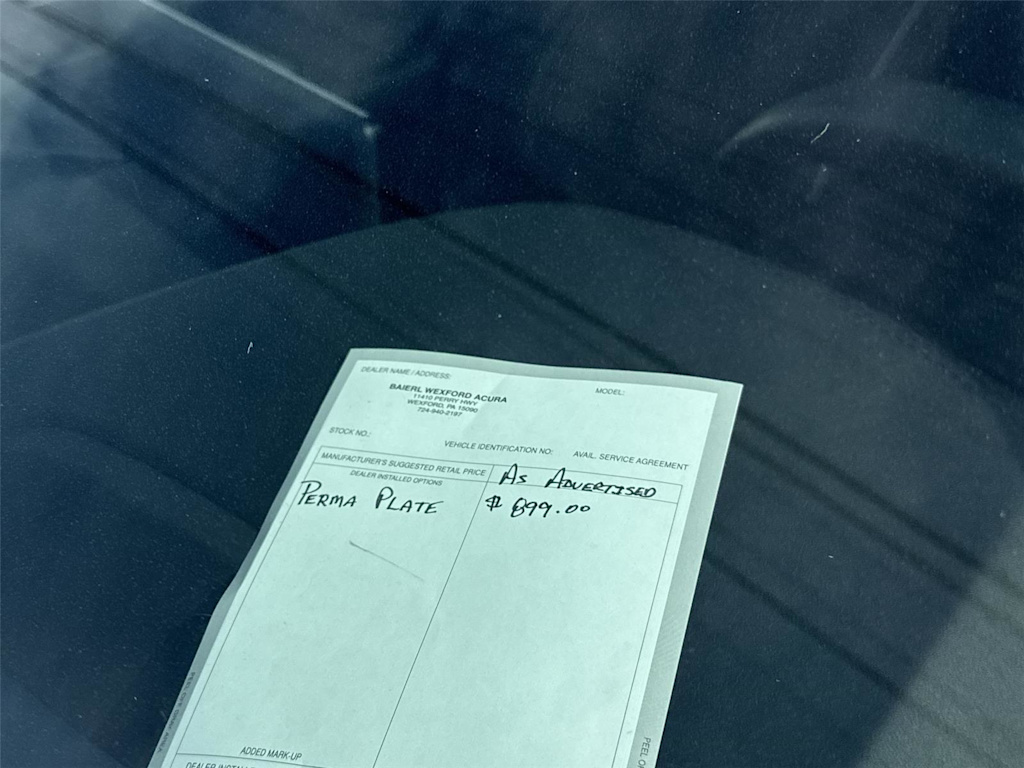 DEALER NAME / ADDRESS:
MODEL:
BAIERL WEXFORD ACURA
11410 PERRY HWY
WEXFORD, PA 15090
724-940-2197
STOCK NO.:
VEHICLE IDENTIFICATION NO:
AVAIL. SERVICE AGREEMENT
MANUFACTURER'S SUGGESTED RETAIL PRICE
AS ADVERTISED
DEALER INSTALLED OPTIONS
PERMA PLATE
$ 899.00
ADDED MARK-UP
DEALER
PEEL